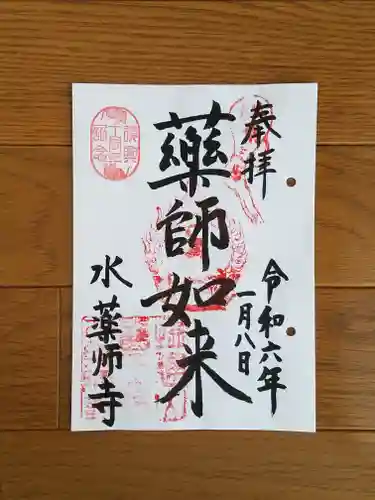 奉拝
令和六年
一月八日
藥師如来
水薬師寺